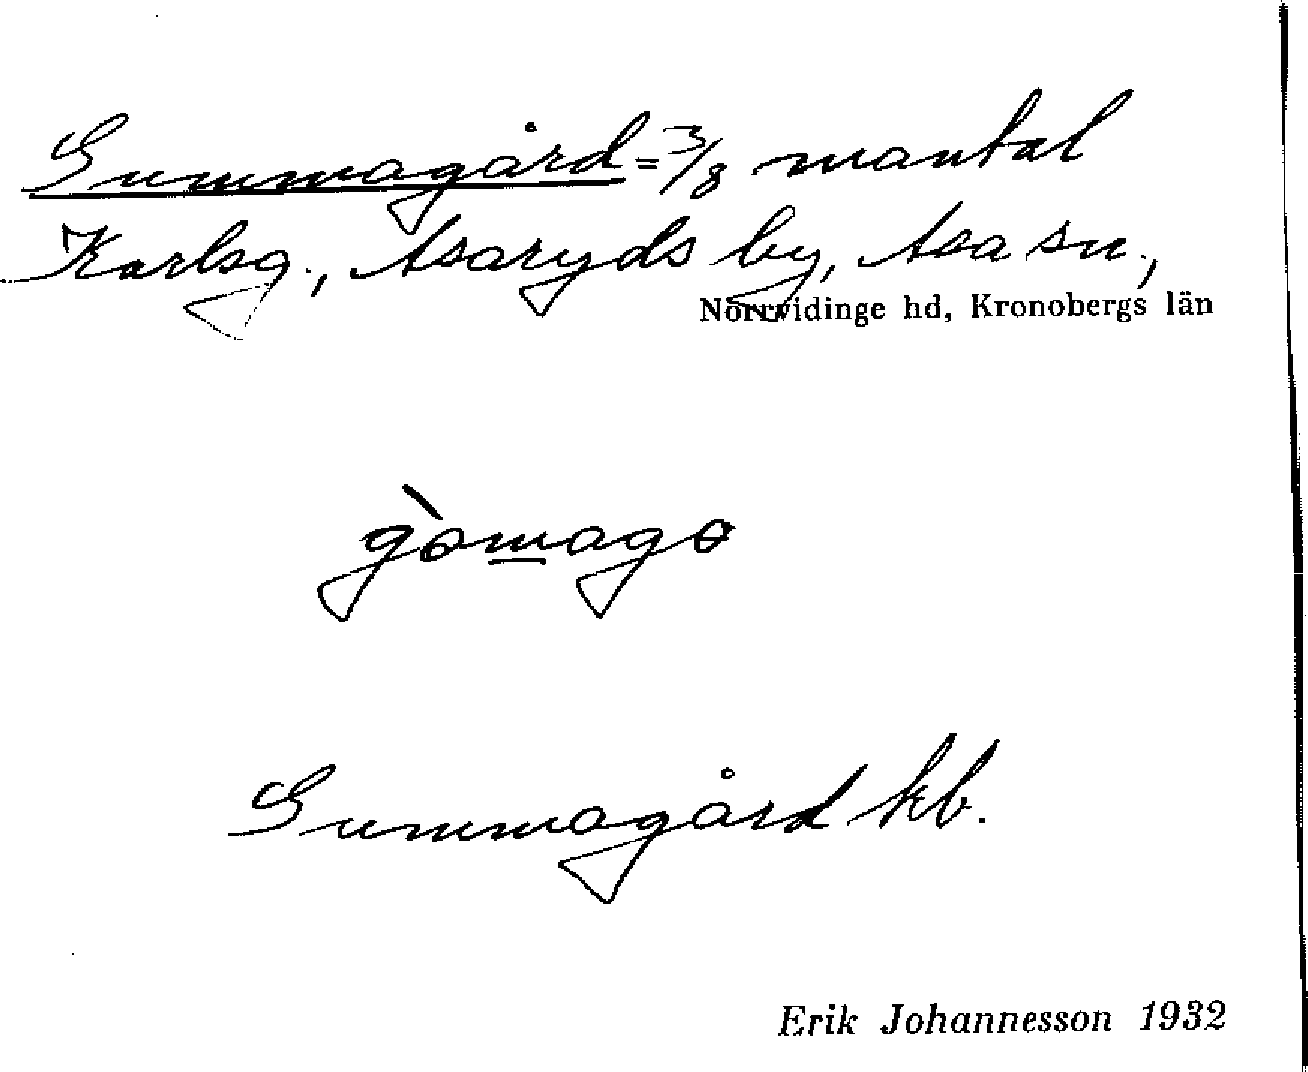 Gummagård = 3/8 mantal
Karlsg., Asaryds by, Asa sn.,
Norrvidinge hd, Kronobergs län
gòmago
Gummagård kb.
Erik Johannesson 1932